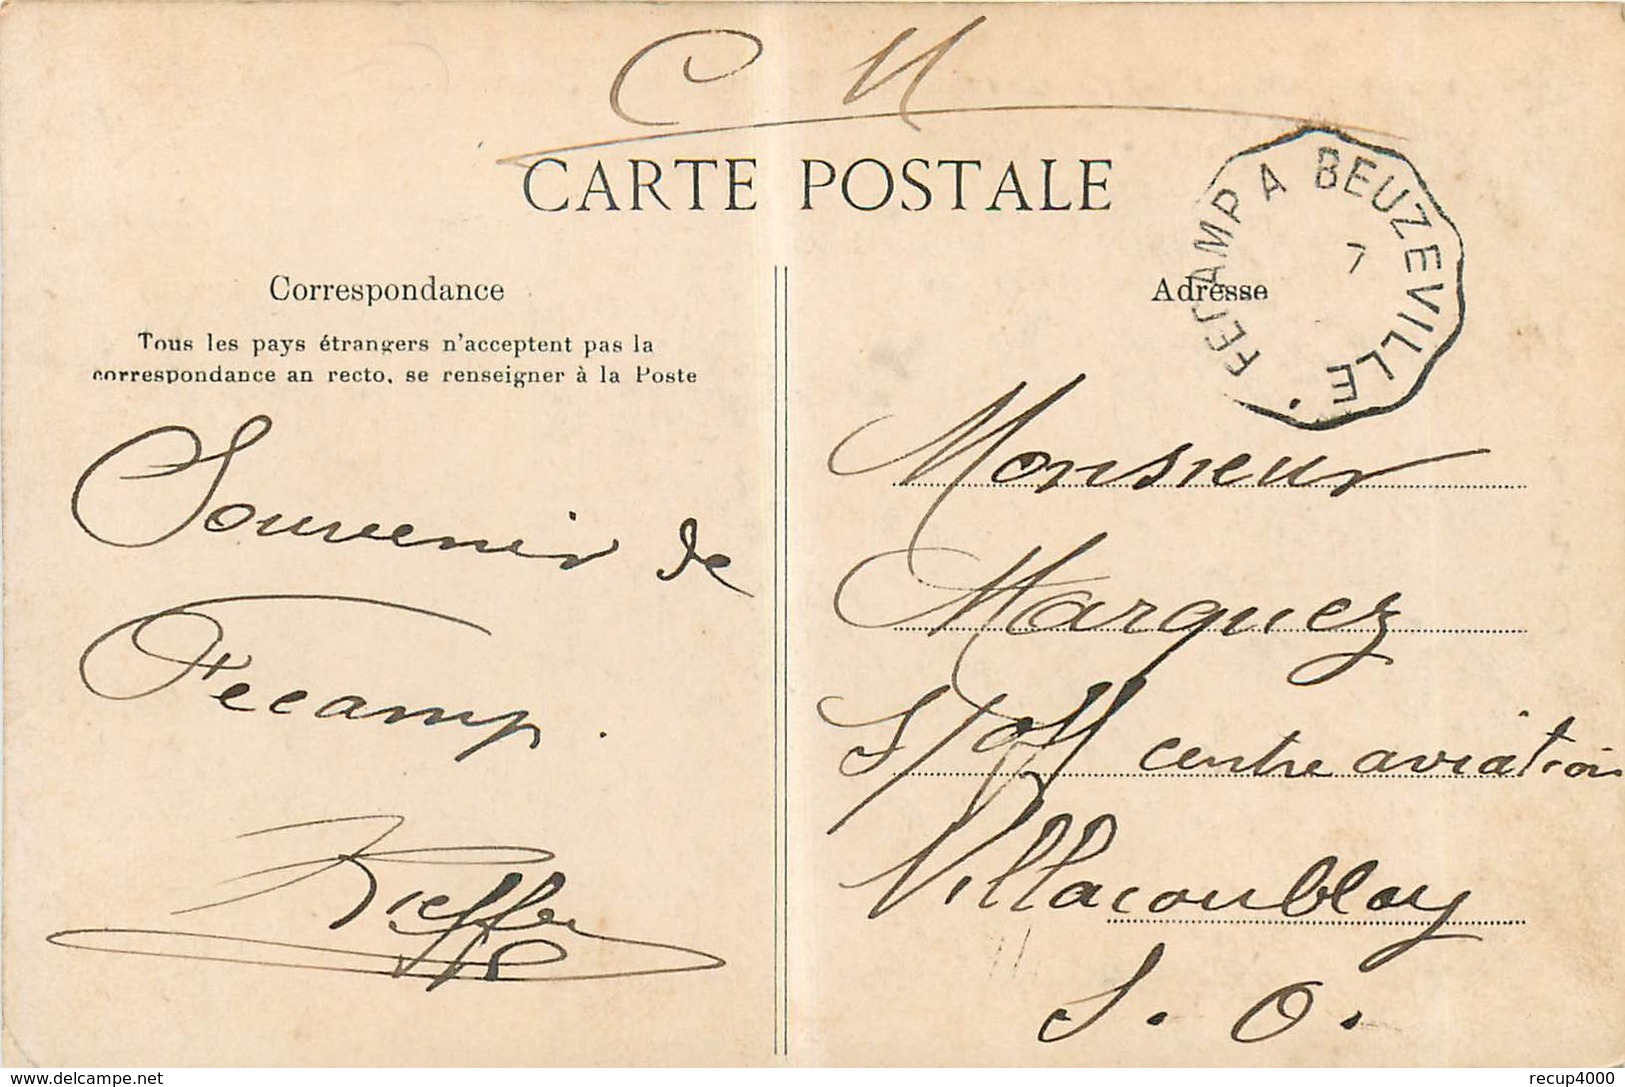 C M
CARTE POSTALE
FECAMP A BEUZEVILLE
7
Correspondance
Tous les pays étrangers n'acceptent pas la
correspondance au recto, se renseigner à la Poste
Souvenir de
Fecamp.
Kieffer
Adresse
Monsieur
Marquez
S/off centre aviation
Villacoublay
S. O.
www.delcampe.net
recup4000